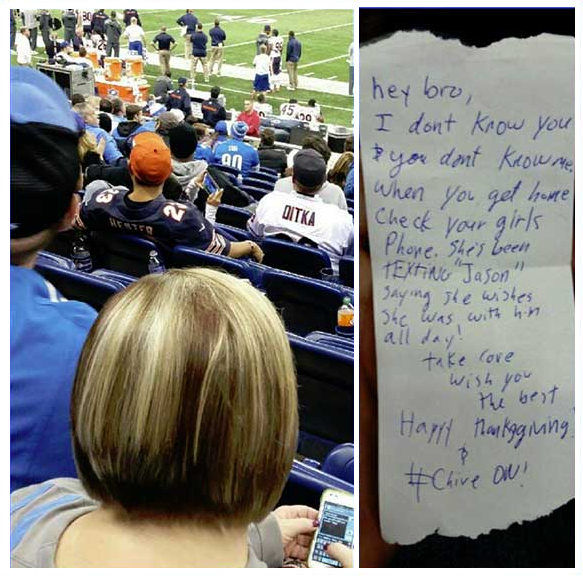 HESTER
23
DITKA
90
hey bro,
I dont know you
& you dont know me,
when you get home
Check your girls
Phone. She's been
"TEXTING Jason"
saying she wishes
she was with him
all day!
take care
wish you
the best
Happy Thanksgiving
&
#Chive ON!